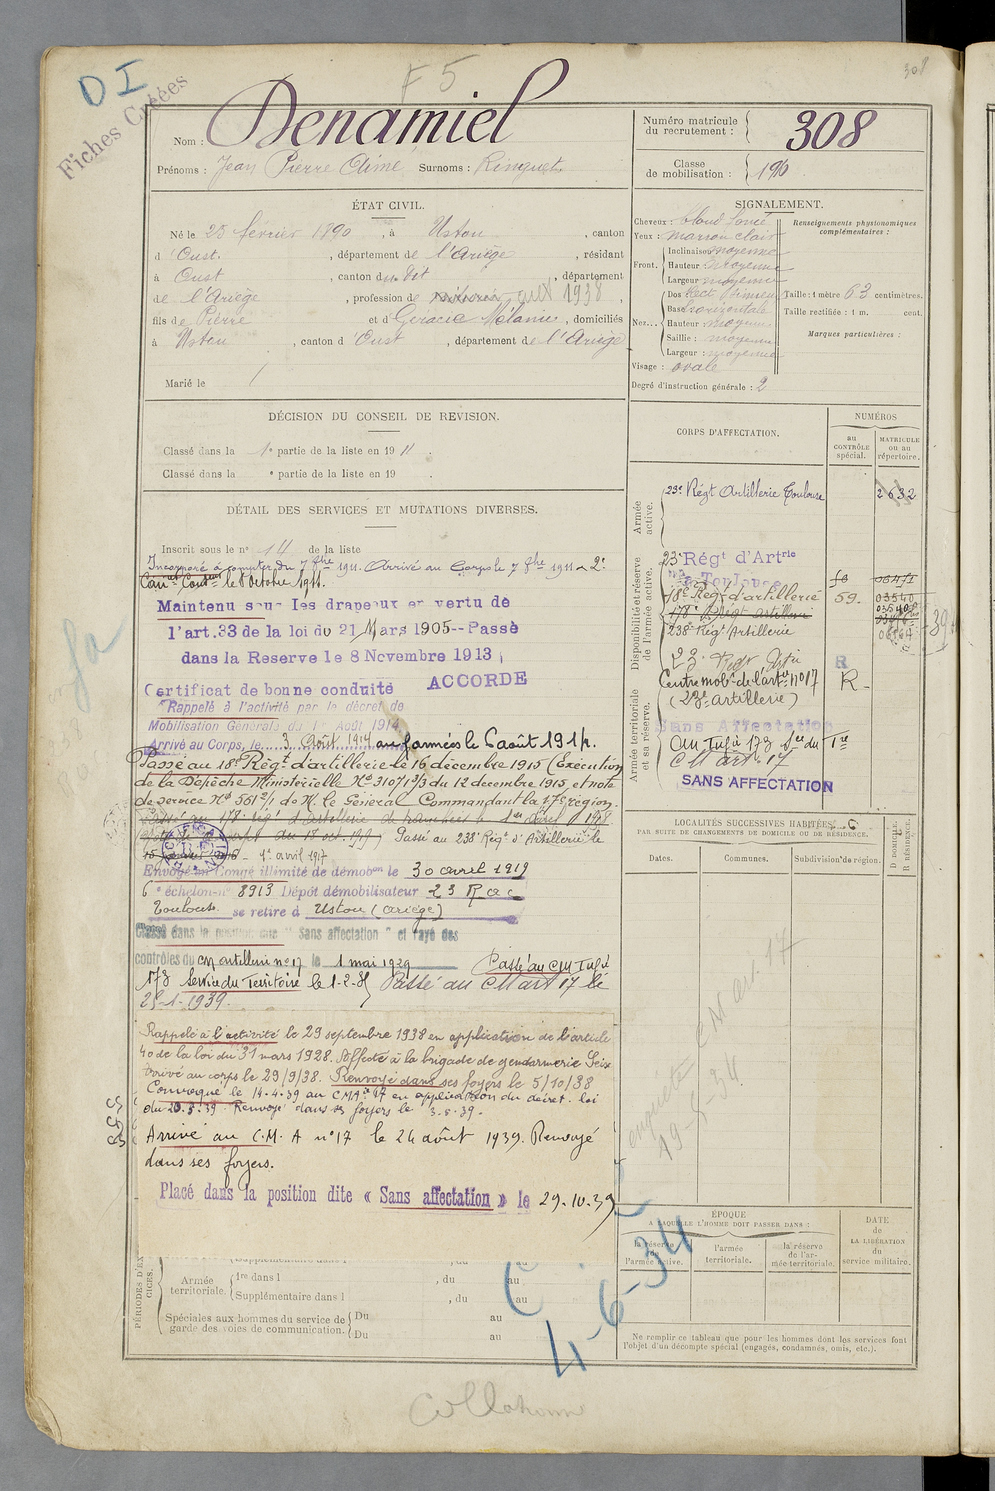 308
F 5
D I
Fiches Créées
Nom : Denamiel
Prénoms : Jean Pierre Aimé Surnoms : Ringuet
Numéro matricule du recrutement : 308
Classe de mobilisation : 1910
ÉTAT CIVIL.
Né le 25 février 1890, à Ustou, canton
d'Oust, département de l'Ariège, résidant
à Oust, canton du dit, département
de l'Ariège, profession de aux 1938,
fils de Pierre et d Géracie Mélanie, domiciliés
à Ustou, canton d'Oust, département de l'Ariège
Marié le /
SIGNALEMENT.
Cheveux : blond foncé
Yeux : marron clair
Front. Inclinaison moyenne
Hauteur moyenne
Largeur moyenne
Nez... Dos rect
Base horizontale
Hauteur moyenne
Saillie : moyenne
Largeur : moyenne
Visage : ovale
Degré d'instruction générale : 2
Renseignements physionomiques complémentaires :
Taille : 1 mètre 63 centimètres.
Taille rectifiée : 1 m. cent.
Marques particulières :
DÉCISION DU CONSEIL DE REVISION.
Classé dans la 1e partie de la liste en 1911.
Classé dans la e partie de la liste en 19 .
DÉTAIL DES SERVICES ET MUTATIONS DIVERSES.
Inscrit sous le no 14 de la liste
Incorporé à compter du 7 8bre 1911. Arrivé au Corps le 7 8bre 1911 2e
Canr Condr le 8 Octobre 1911.
Maintenu sous les drapeaux en vertu de
l'art. 33 de la loi du 21 Mars 1905 -- Passé
dans la Reserve le 8 Novembre 1913
Certificat de bonne conduite ACCORDE
Rappelé à l'activité par le décret de
Mobilisation Générale du 1er Août 1914
Arrivé au Corps, le 3 Août 1914 aux armées le 6 août 1914.
Passé au 18e Régt d'artillerie le 16 décembre 1915 (Exécution
de la Dépêche Ministérielle No 31071 2/3 du 12 décembre 1915, et note
de service No 561 2/1 de M. le Général Commandant la 17e région.
Passé au 178e régt d'artillerie de tranchées le 1er avril 1918
Passé au 238e Régt d'Artillerie le
1er avril 1917
Envoyé en Congé illimité de démobon le 30 avril 1919
6e échelon no 8913 Dépôt démobilisateur 23 R a c
Toulouse se retire à Ustou (Ariège)
Classé dans la position dite "Sans affectation" et rayé des
contrôles du CM artillerie no 17 le 1 mai 1929 Passé au CM Infie
173 Service du Territoire le 1-2-35 Passé au CM art 17 le
25-1-1939.
Rappelé à l'activité le 29 septembre 1938 en application de l'article
40 de la loi du 31 mars 1928. Affecté à la brigade de gendarmerie Seix
arrivé au corps le 29/9/38. Renvoyé dans ses foyers le 5/10/38
Convoqué le 14-4-39 au CMA no 17 en application du décret-loi
du 20.3.39. Renvoyé dans ses foyers le 3-5-39.
Arrivé au C.M.A no 17 le 24 août 1939. Renvoyé
dans ses foyers.
Placé dans la position dite « Sans affectation » le 29-10-39
PÉRIODES D'EXERCICES.
Armée territoriale. 1re dans l , du au
Supplémentaire dans l , du au
Spéciales aux hommes du service de garde des voies de communication. Du au
Du au
CORPS D'AFFECTATION.
NUMÉROS
au CONTRÔLE spécial.
MATRICULE ou au répertoire.
Armée active.
23e Régt Artillerie Toulouse 2632
Disponibilité et réserve de l'armée active.
23e Régt d'Artrie
Toulouse
18e Régt d'artillerie 59. 03540
178e Régt artillerie
238e Régt Artillerie
23e Régt Artie R
Armée territoriale et sa réserve.
Centre mobe de l'artie no 17 R
(23e artillerie)
Sans Affectation
CM Infie 173 Sce du Tre
CM art. 17
SANS AFFECTATION
LOCALITÉS SUCCESSIVES HABITÉES
PAR SUITE DE CHANGEMENTS DE DOMICILE OU DE RÉSIDENCE.
Dates.
Communes.
Subdivision de région.
D DOMICILE.
R RÉSIDENCE.
enquête CM art. 17
19-5-34
ÉPOQUE
A LAQUELLE L'HOMME DOIT PASSER DANS :
la réserve de l'armée active.
l'armée territoriale.
la réserve de l'armée territoriale.
DATE de LA LIBÉRATION du service militaire.
4-6-34
Ne remplir ce tableau que pour les hommes dont les services font
l'objet d'un décompte spécial (engagés, condamnés, omis, etc.).